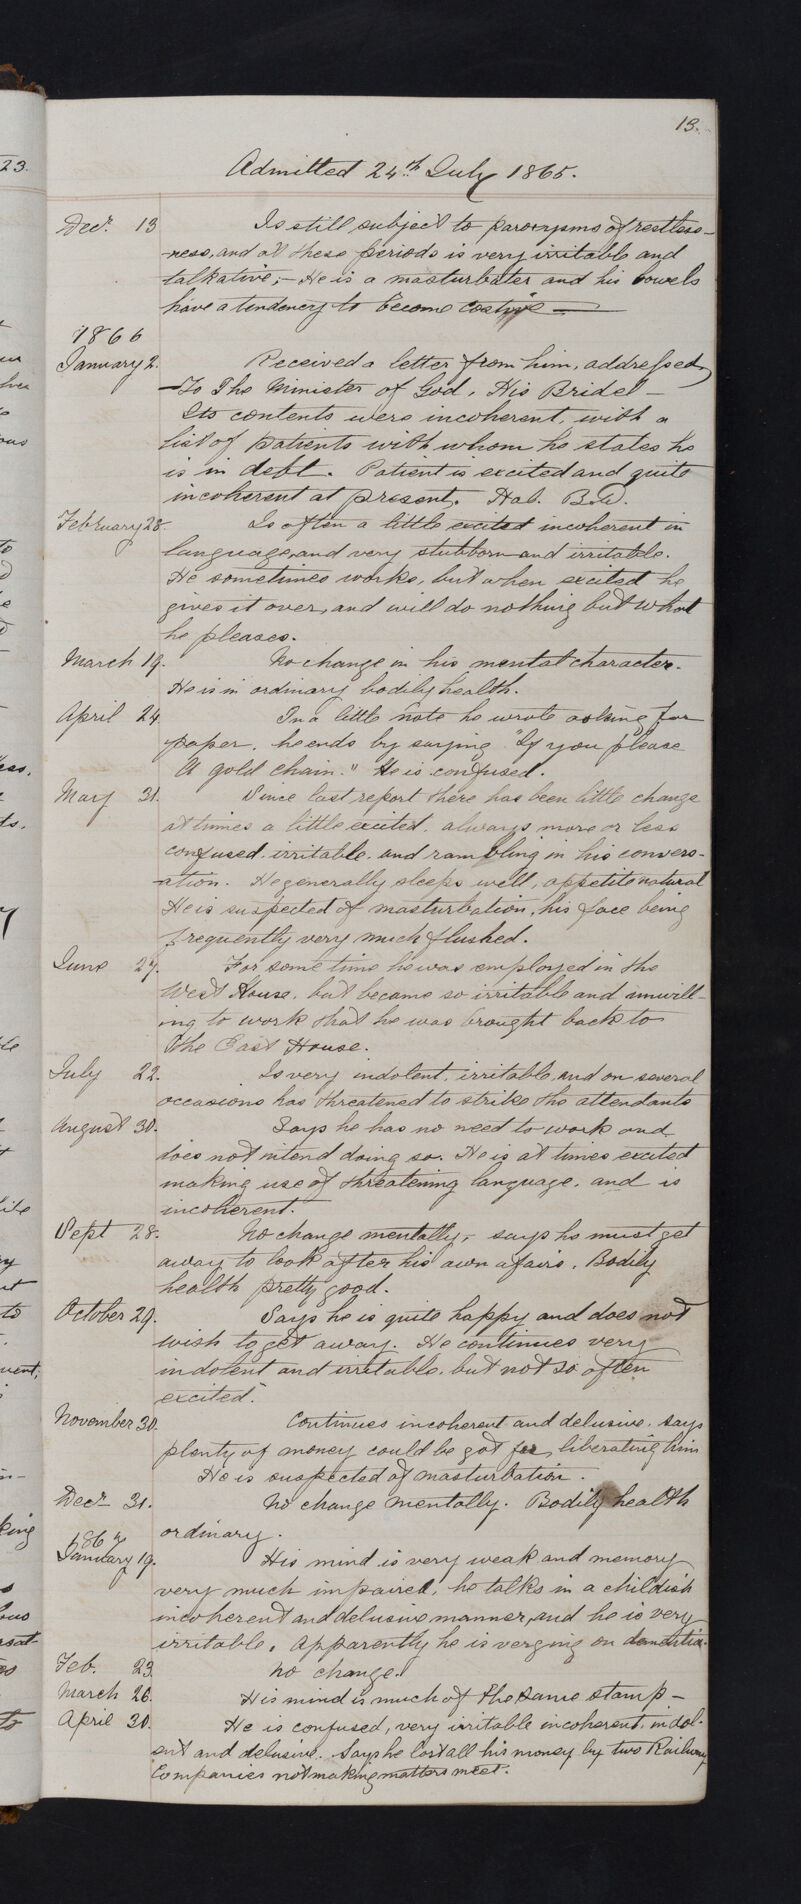 13.
Admitted 24th July 1865.
Decr 13 Is still subject to paroxysms of restless-
ness, and at these periods is very irritable and
talkative; – He is a masturbater and his bowels
have a tendency to become costive —
1866
January 2. Received a letter from him, addressed
To The Minister of God, His Bridel –
Its contents were incoherent, with a
list of patients with whom he states he
is in debt. Patient is excited and quite
incoherent at present. Hab. B.d.
February 28. Is often a little excited incoherent in
language, and very stubborn and irritable.
He sometimes works, but when excited he
gives it over, and will do nothing but what
he pleases.
March 19. No change in his mental character.
He is in ordinary bodily health.
April 24 In a little note he wrote asking for
paper, he ends by saying "If you please
A gold chain." He is confused.
May 31. Since last report there has been little change
at times a little excited, always more or less
confused, irritable, and rambling in his convers-
ation. He generally sleeps well, appetite natural
He is suspected of masturbation, his face being
frequently very much flushed.
June 27. For some time he was employed in the
West House, but became so irritable and unwill-
ing to work that he was brought back to
The East House.
July 22. Is very indolent, irritable, and on several
occasions has threatened to strike the attendants
August 30. Says he has no need to work and
does not intend doing so. He is at times excited
making use of threatening language, and is
incoherent.
Sept 28. No change mentally, says he must get
away to look after his own afairs. Bodily
health pretty good.
October 29. Says he is quite happy and does not
wish to get away. He continues very
indolent and irritable, but not so often
excited.
November 30. Continues incoherent and delusive, says
plenty of money could be got for liberating him
He is suspected of masturbation.
Decr 31. No change mentally. Bodily health
ordinary.
1867
January 19. His mind is very weak and memory
very much impaired, he talks in a childish
incoherent and delusive manner, and he is very
irritable. Apparently he is verging on dementia.
Feb. 23 No change.
March 26. His mind is much of the same stamp –
April 30. He is confused, very irritable incoherent, indol-
ent and delusive. Says he lost all his money by two Railway
Companies not making matters meet.